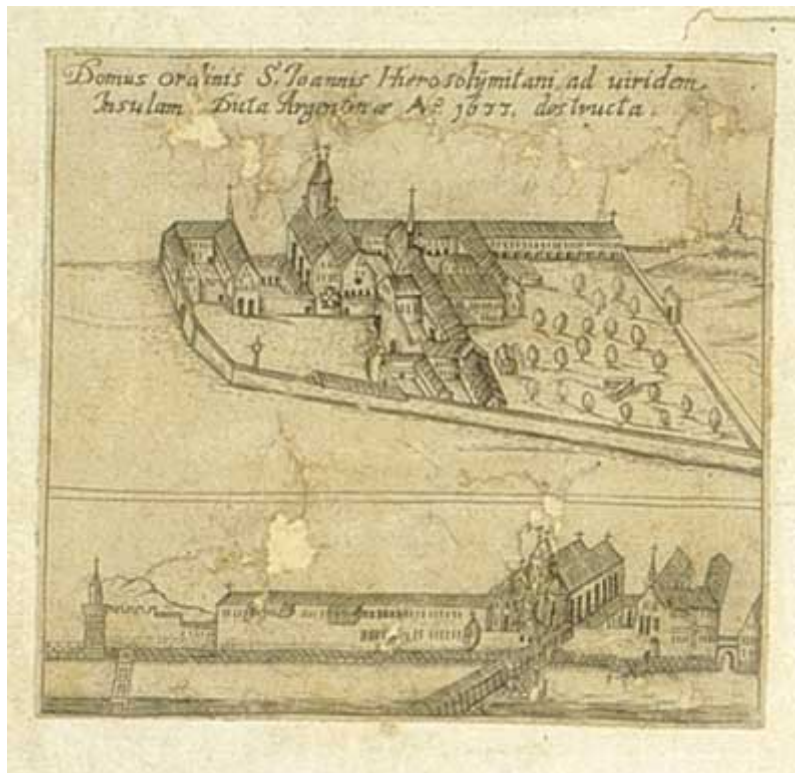 Domus Ordinis S. Joannis Hierosolÿmitani, ad uiridem
Insulam Dicta Argentinæ Aº. 1633. destructa.